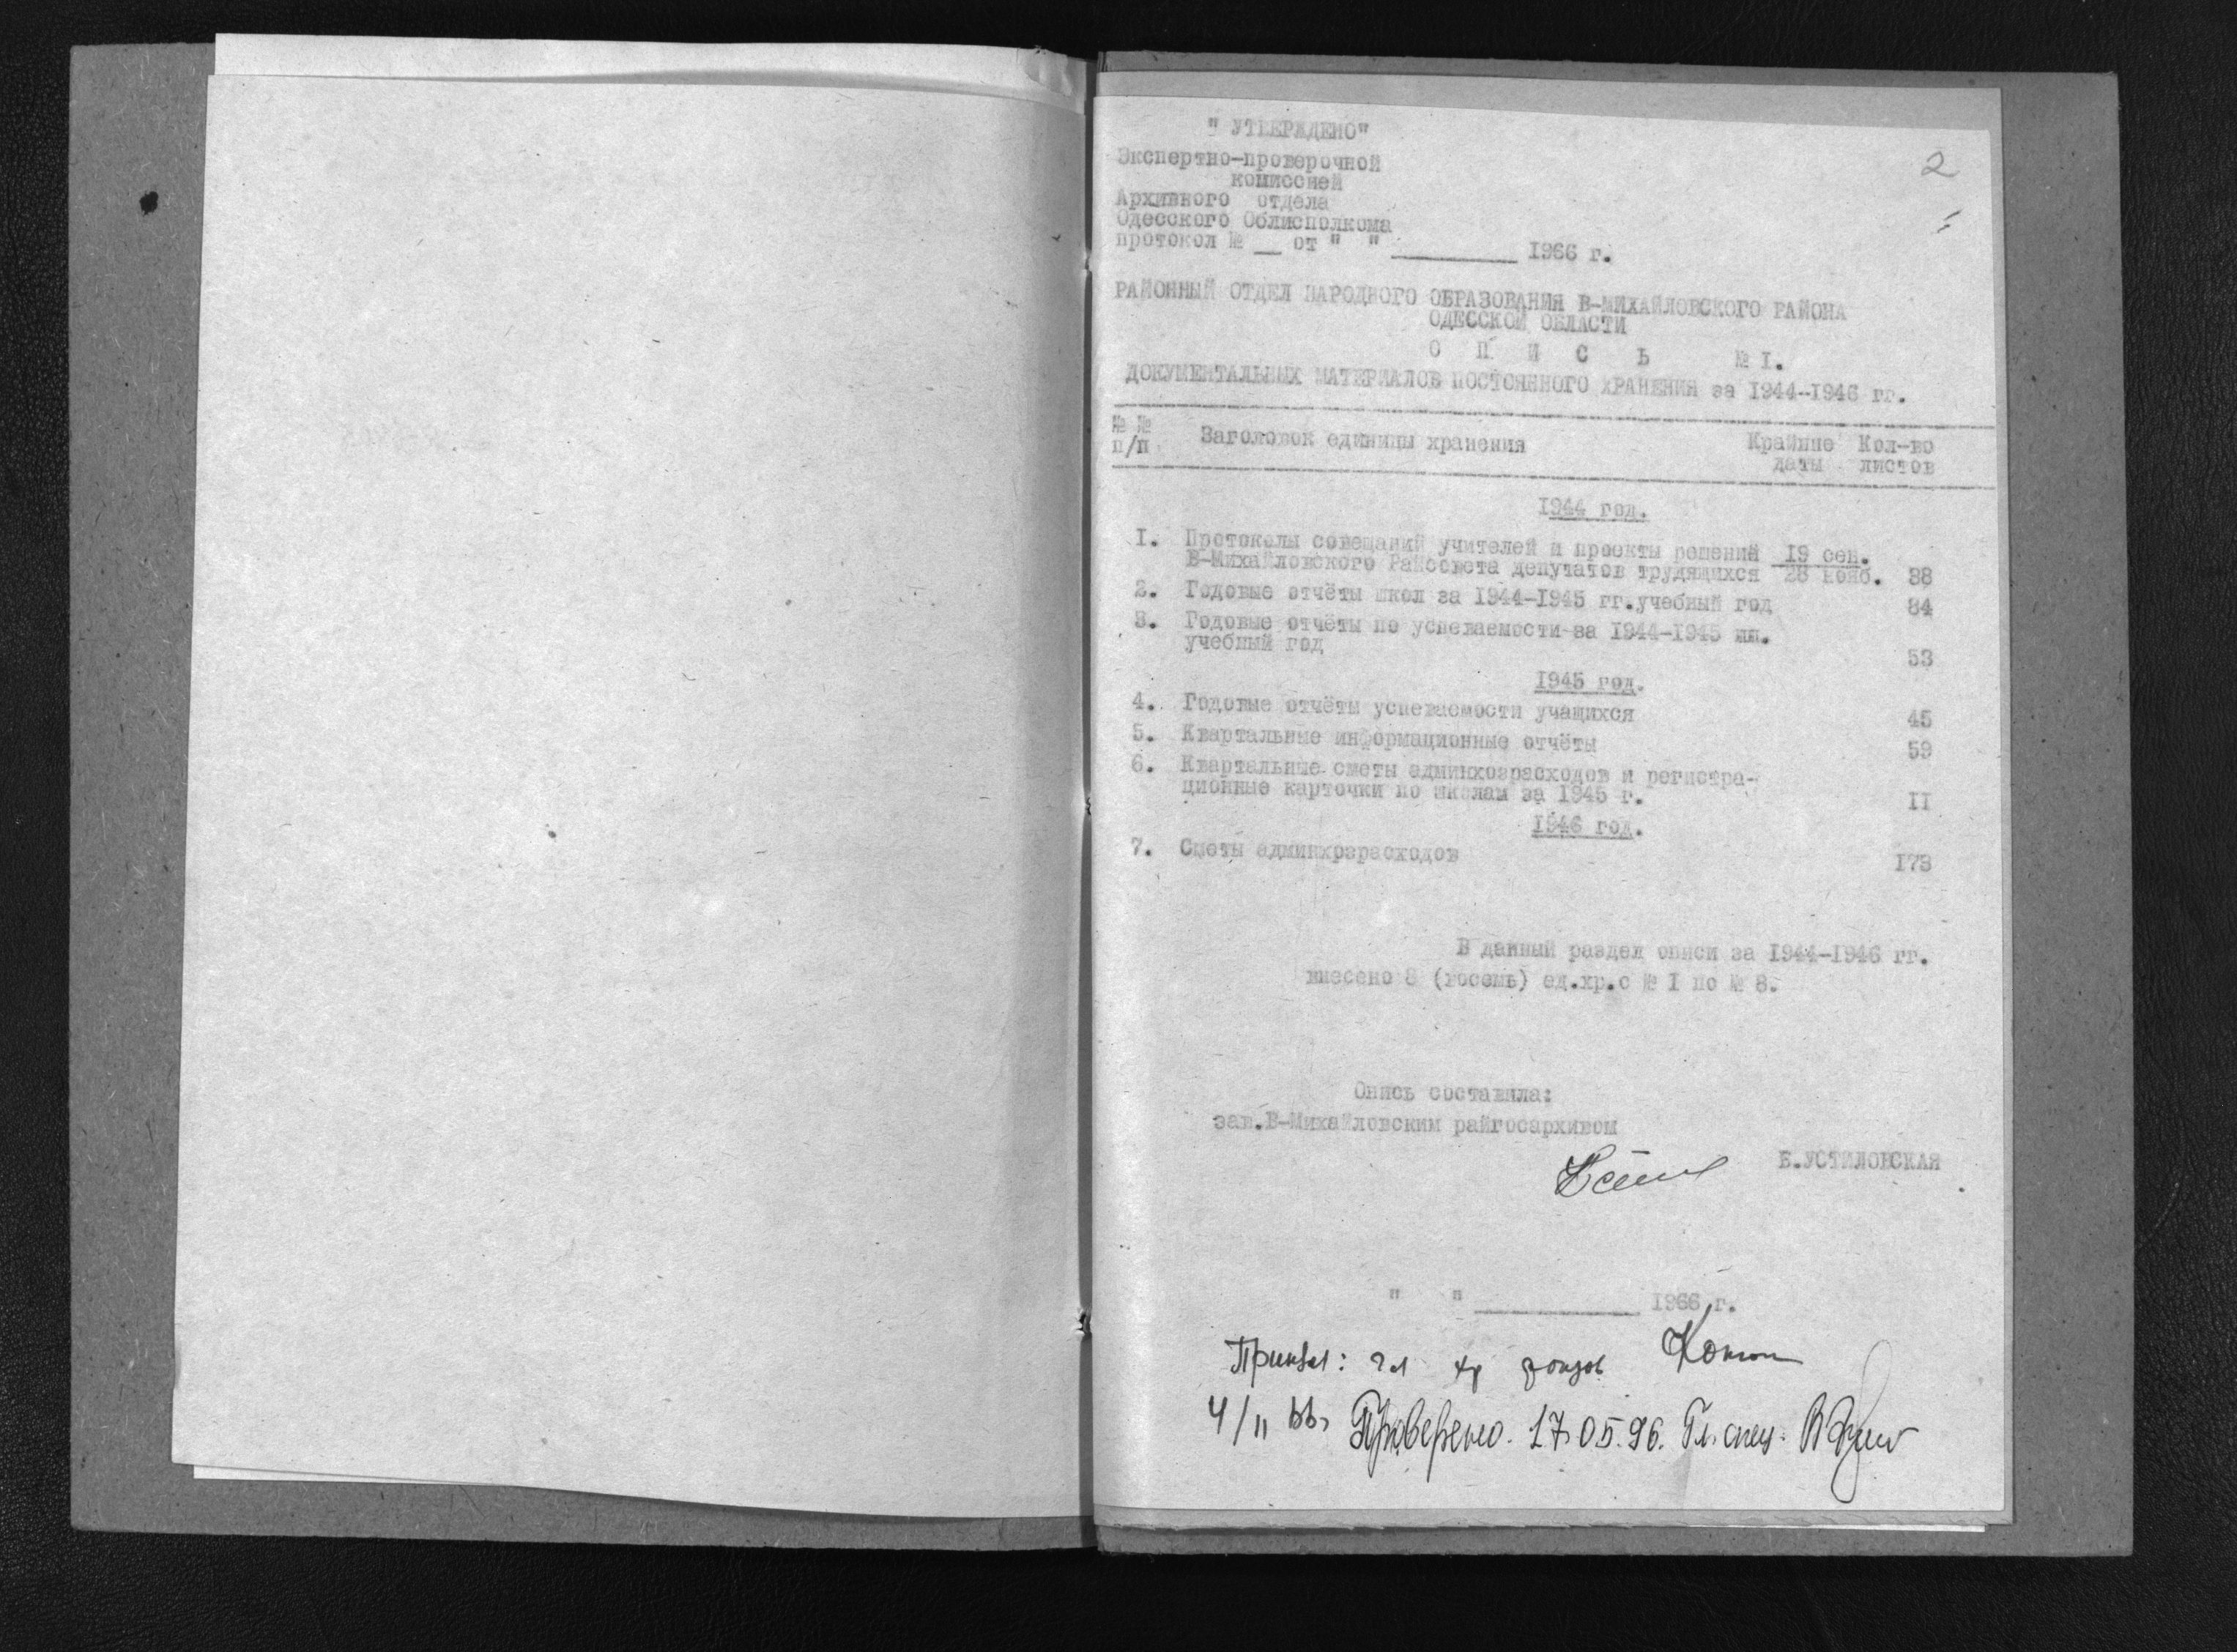 2
" УТВЕРЖДЕНО"
Экспертно-проверочной
комиссией
Архивного отдела
Одесского Облисполкома
протокол № __ от " " ________ 1966 г.
РАЙОННЫЙ ОТДЕЛ НАРОДНОГО ОБРАЗОВАНИЯ В-МИХАЙЛОВСКОГО РАЙОНА
ОДЕССКОЙ ОБЛАСТИ
О П И С Ь № I.
ДОКУМЕНТАЛЬНЫХ МАТЕРИАЛОВ ПОСТОЯННОГО ХРАНЕНИЯ за 1944-1946 гг.
№ № Заголовок единицы хранения Крайние Кол-во
п/п даты листов
1944 год.
I. Протоколы совещаний учителей и проекты решений 19 сен.
В-Михайловского Райсовета депутатов трудящихся 28 нояб. 38
2. Годовые отчёты школ за 1944-1945 гг.учебный год 84
3. Годовые отчёты по успеваемости за 1944-1945 шп.
учебный год 53
1945 год.
4. Годовые отчёты успеваемости учащихся 45
5. Квартальные информационные отчёты 59
6. Квартальные сметы админхозрасходов и регистра-
ционные карточки по школам за 1945 г. II
1946 год.
7. Сметы админхозрасходов 173
В данный раздел описи за 1944-1946 гг.
внесено 8 (восемь) ед.хр.с № I по № 8.
Опись составила:
зав.В-Михайловским райгосархивом
Б.УСТИЛОВСКАЯ
" " ________ 1966 г.
Принял: гл хр фондов
4/II 66г Проверено. 17.05.96. Гл. спец.